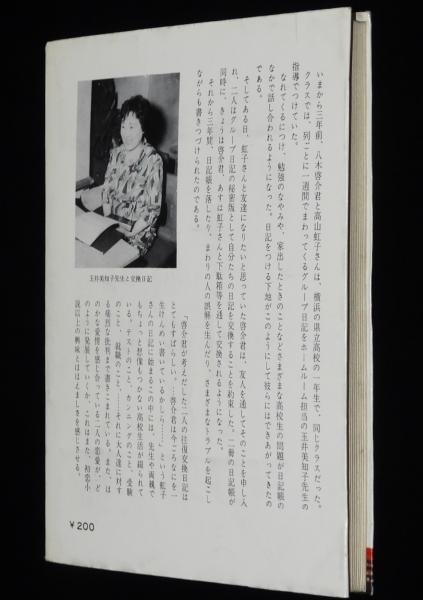 いまから三年前、八木啓介君と高山虹子さんは、横浜の県立高校の一年生で、同じクラスだった。
クラスでは、列ごとに一週間でまわってくるグループ日記をホームルーム担当の玉井美知子先生の
指導でつけていた。
なれてくるにつけ、勉強のなやみや、家出したときのことなどさまざまな高校生の問題が日記帳の
なかで話し合われるようになった。日記をつける下地がこのようにして彼らにはできあがってきたの
である。
そしてある日、虹子さんと友達になりたいと思っていた啓介君は、友人を通してそのことを申し入
れ、二人はグループ日記の秘密版として自分たちの日記を交換することを約束した。二冊の日記帳が
同時に、きょうは啓介君、あすは虹子さんと下駄箱等を通して交換されるようになった。
それから三年間、日記帳を落したり、まわりの人の誤解を生んだり、さまざまなトラブルを起こし
ながらも書きつづけられたのである。
玉井美知子先生と交換日記
「啓介君が考えだした二人の往復交換日記は
とてもすばらしい。……啓介君は今ごろなにを一
生けんめい書いているかしら……」という虹子
さんの日記に始まるこの中には、先生や両親で
もちょっと想像もつかない高校生活が綴られて
いる。テストのこと、カンニングのこと、受験
のこと、就職のこと、……それに大人達に対す
る痛烈な批判まで書きこまれている。また、ほ
のかな愛情を感じ合っている二人の恋愛が、ど
のように発展していくか、これはまた、初恋小
説以上の興味とほほえましさを感じさせる。
￥200